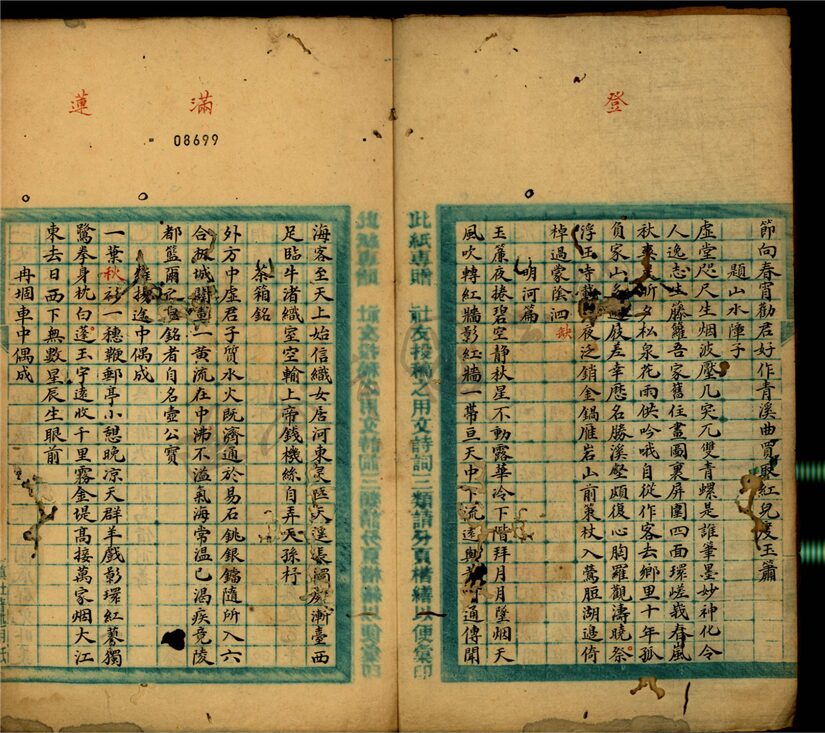 登
節向春霄勸君好作青溪曲買取紅兒度玉簫
題山水障子
虛堂咫尺生烟波壓几突兀雙青螺是誰筆墨妙神化令
人逸志生藤蘿吾家舊住畫圖裏屏圍四面環嵯峩春嵐
秋昕夕松泉花雨供吟哦自從作客去鄉里十年孤
負家山差幸歷名勝溪壑頗復心胸羅觀濤曉登
浮玉寺夜泛銷金鍋雁岩山前策杖入鶯脰湖邊倚
棹過蒙陰泗缺
明河篇
玉簾夜捲碧空靜秋星不動露華冷下階拜月月墮烟天
風吹轉紅牆影紅牆一帶亘天中下流遠與黃河通傳聞
此紙專贈 社友投稿之用文詩詞三類請分頁楷繕以便彙印
滿
蓮
08699
此紙專贈 社友投稿之用文詩詞三類請分頁楷繕以便彙印
海客至天上始信織女居河東漸臺西
足臨牛渚織室空輸上帝錢機絲自弄天孫杼
茶箱銘
外方中虛君子質水火既濟通於易石銚銀鐺隨所入六
合城關重一黃流在中沸不溢氣海常温已渴疾竟陵
都籃爾銘者自名壺公寶
維揚途中偶成
一葉秋衫一穗鞭郵亭小憩晚凉天群羊戲彰環紅蓼獨
鷺拳身枕白蓮玉宇遠收千里霧金堤高接萬家烟大江
東去日西下無數星辰生眼前
冉堌車中偶成